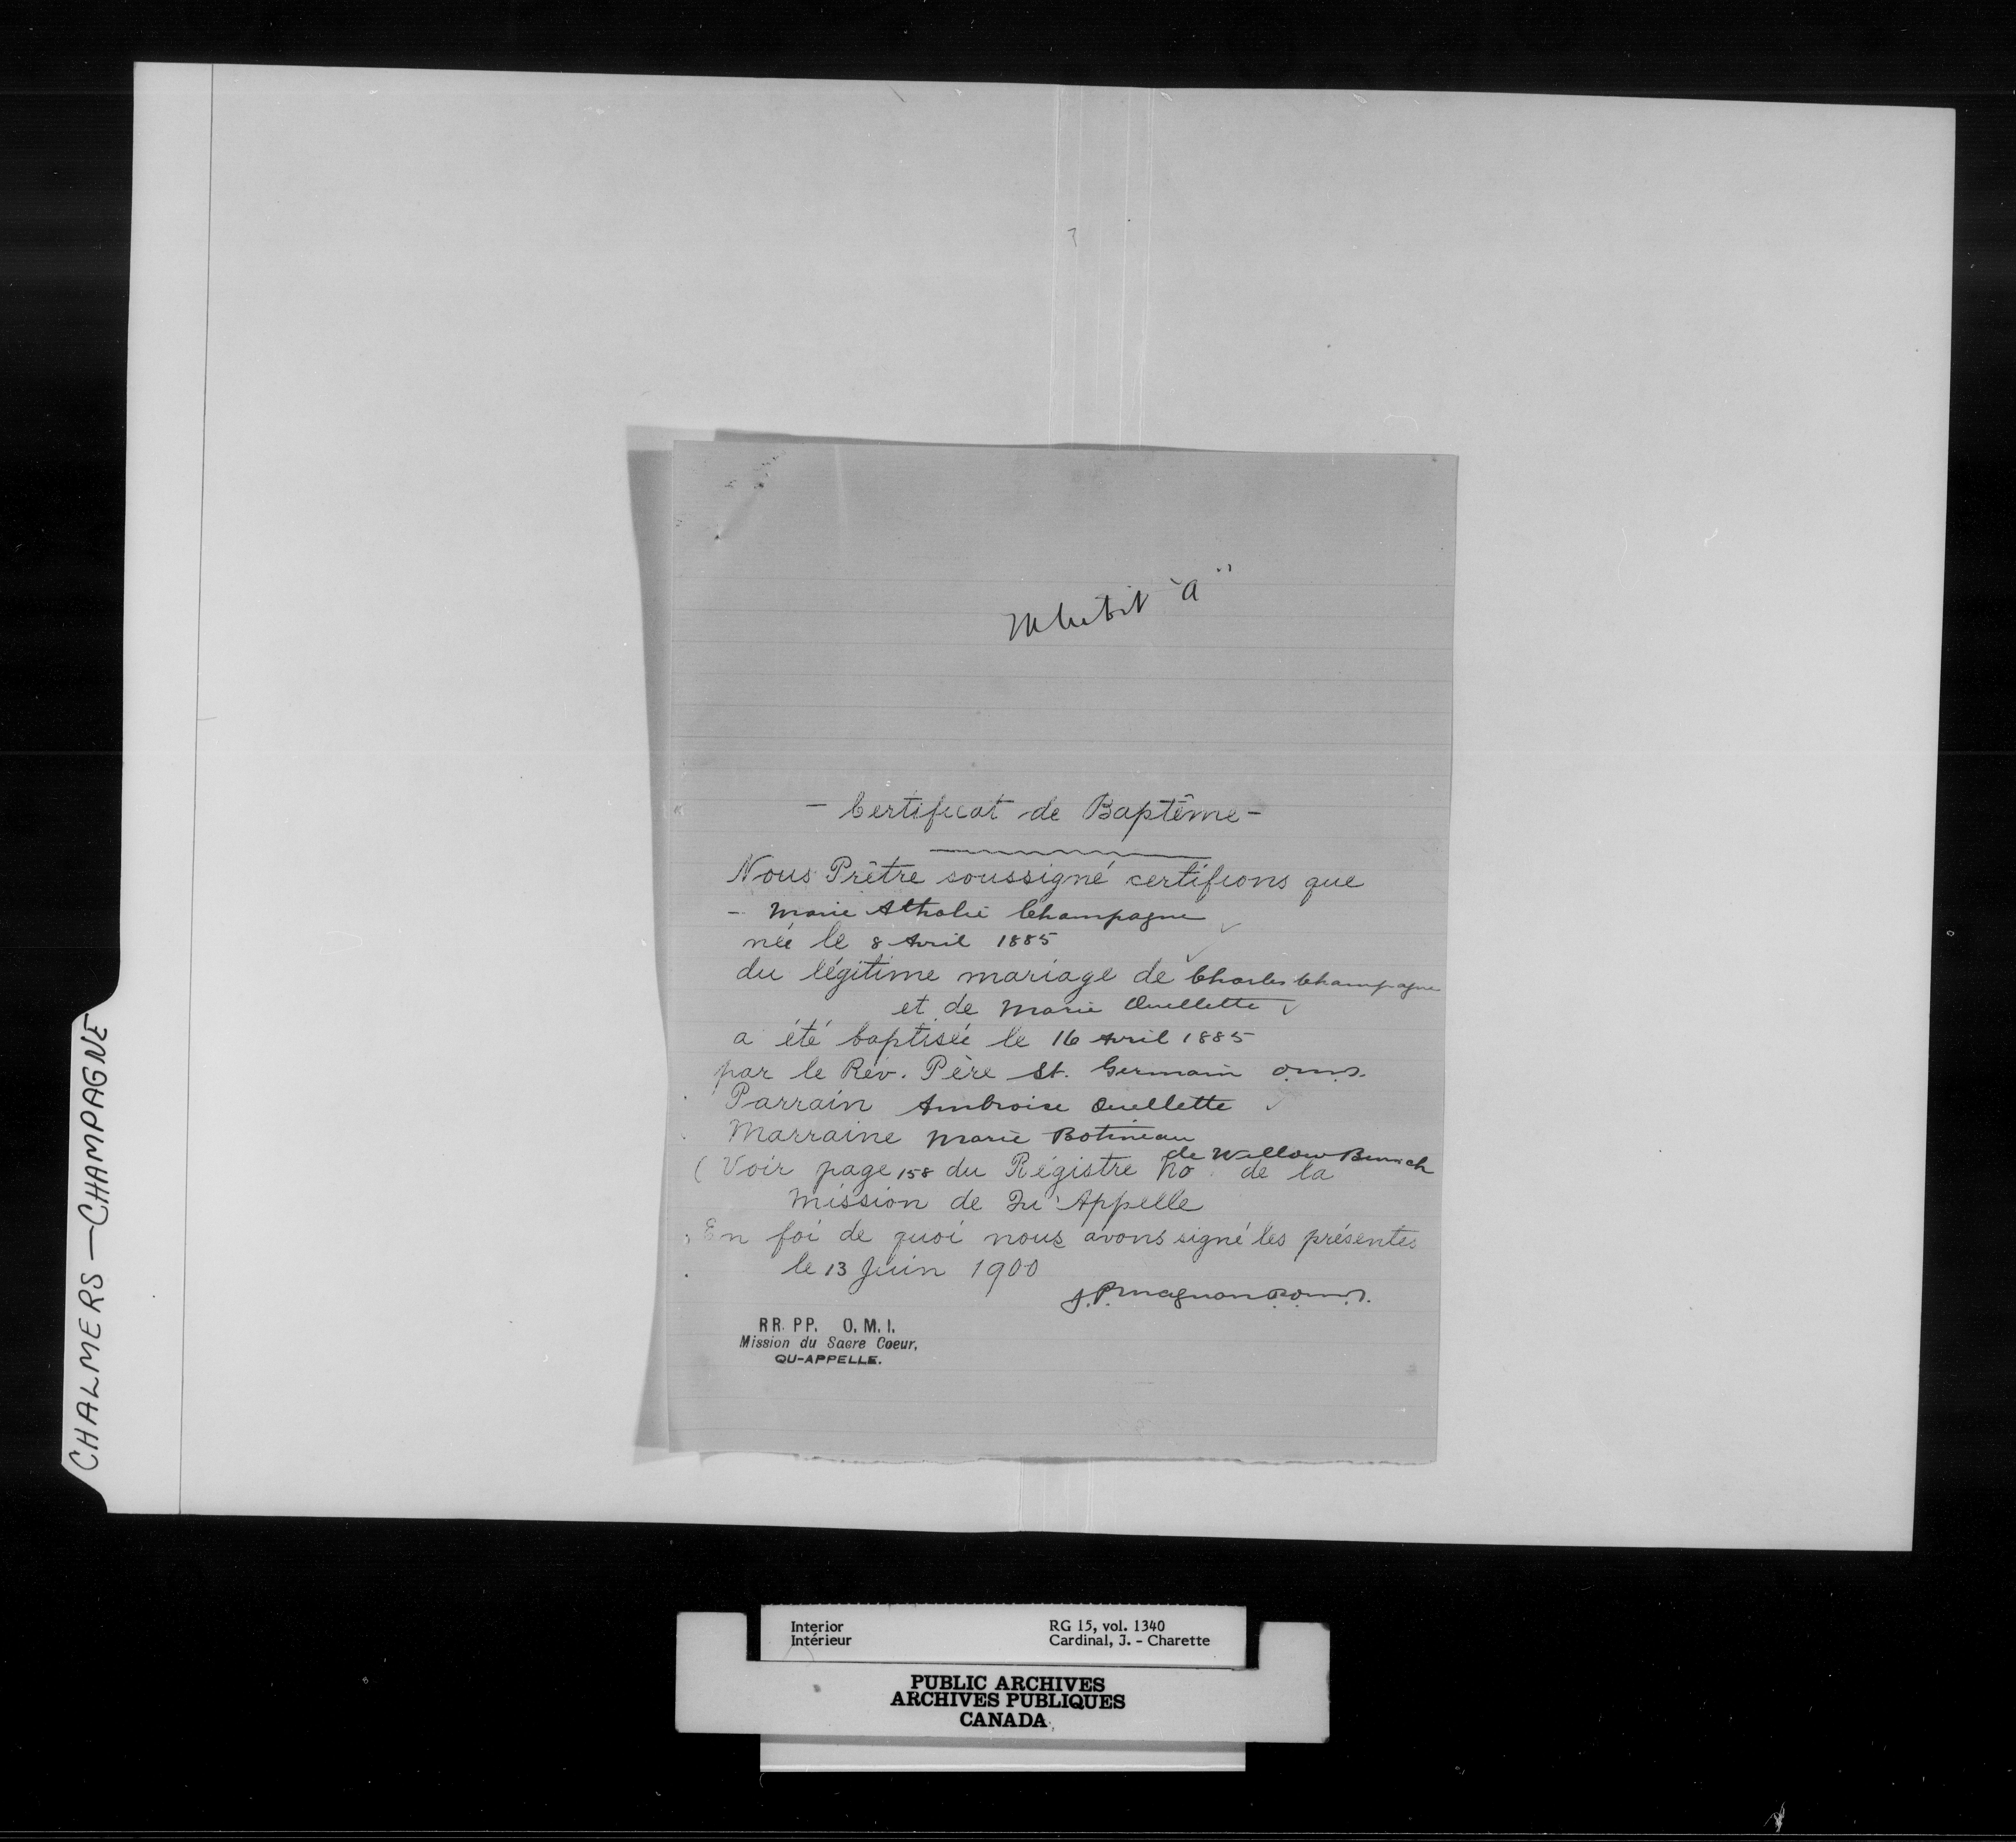 CHALMERS—CHAMPAGNE
"A"
- Certificat de Baptême -
Nous Prêtre soussigné certifions que
- Marie Athalie Champagne
née le 8 Avril 1885
du légitime mariage de Charles Champagne
et de Marie Ouellette
a été baptisée le 16 Avril 1885
par le Rév. Père St. Germain o.m.i.
Parrain Ambroise Ouellette
Marraine Marie Botineau
de Willow Bunch
(Voir page 158 du Régistre No de la
Mission de Qu'Appelle
En foi de quoi nous avons signé les présentes
le 13 Juin 1900
J. P. Magnan o.m.i.
RR. PP. O. M. I.
Mission du Sacre Coeur,
QU-APPELLE.
Interior RG 15, vol. 1340
Intérieur Cardinal, J. - Charette
PUBLIC ARCHIVES
ARCHIVES PUBLIQUES
CANADA